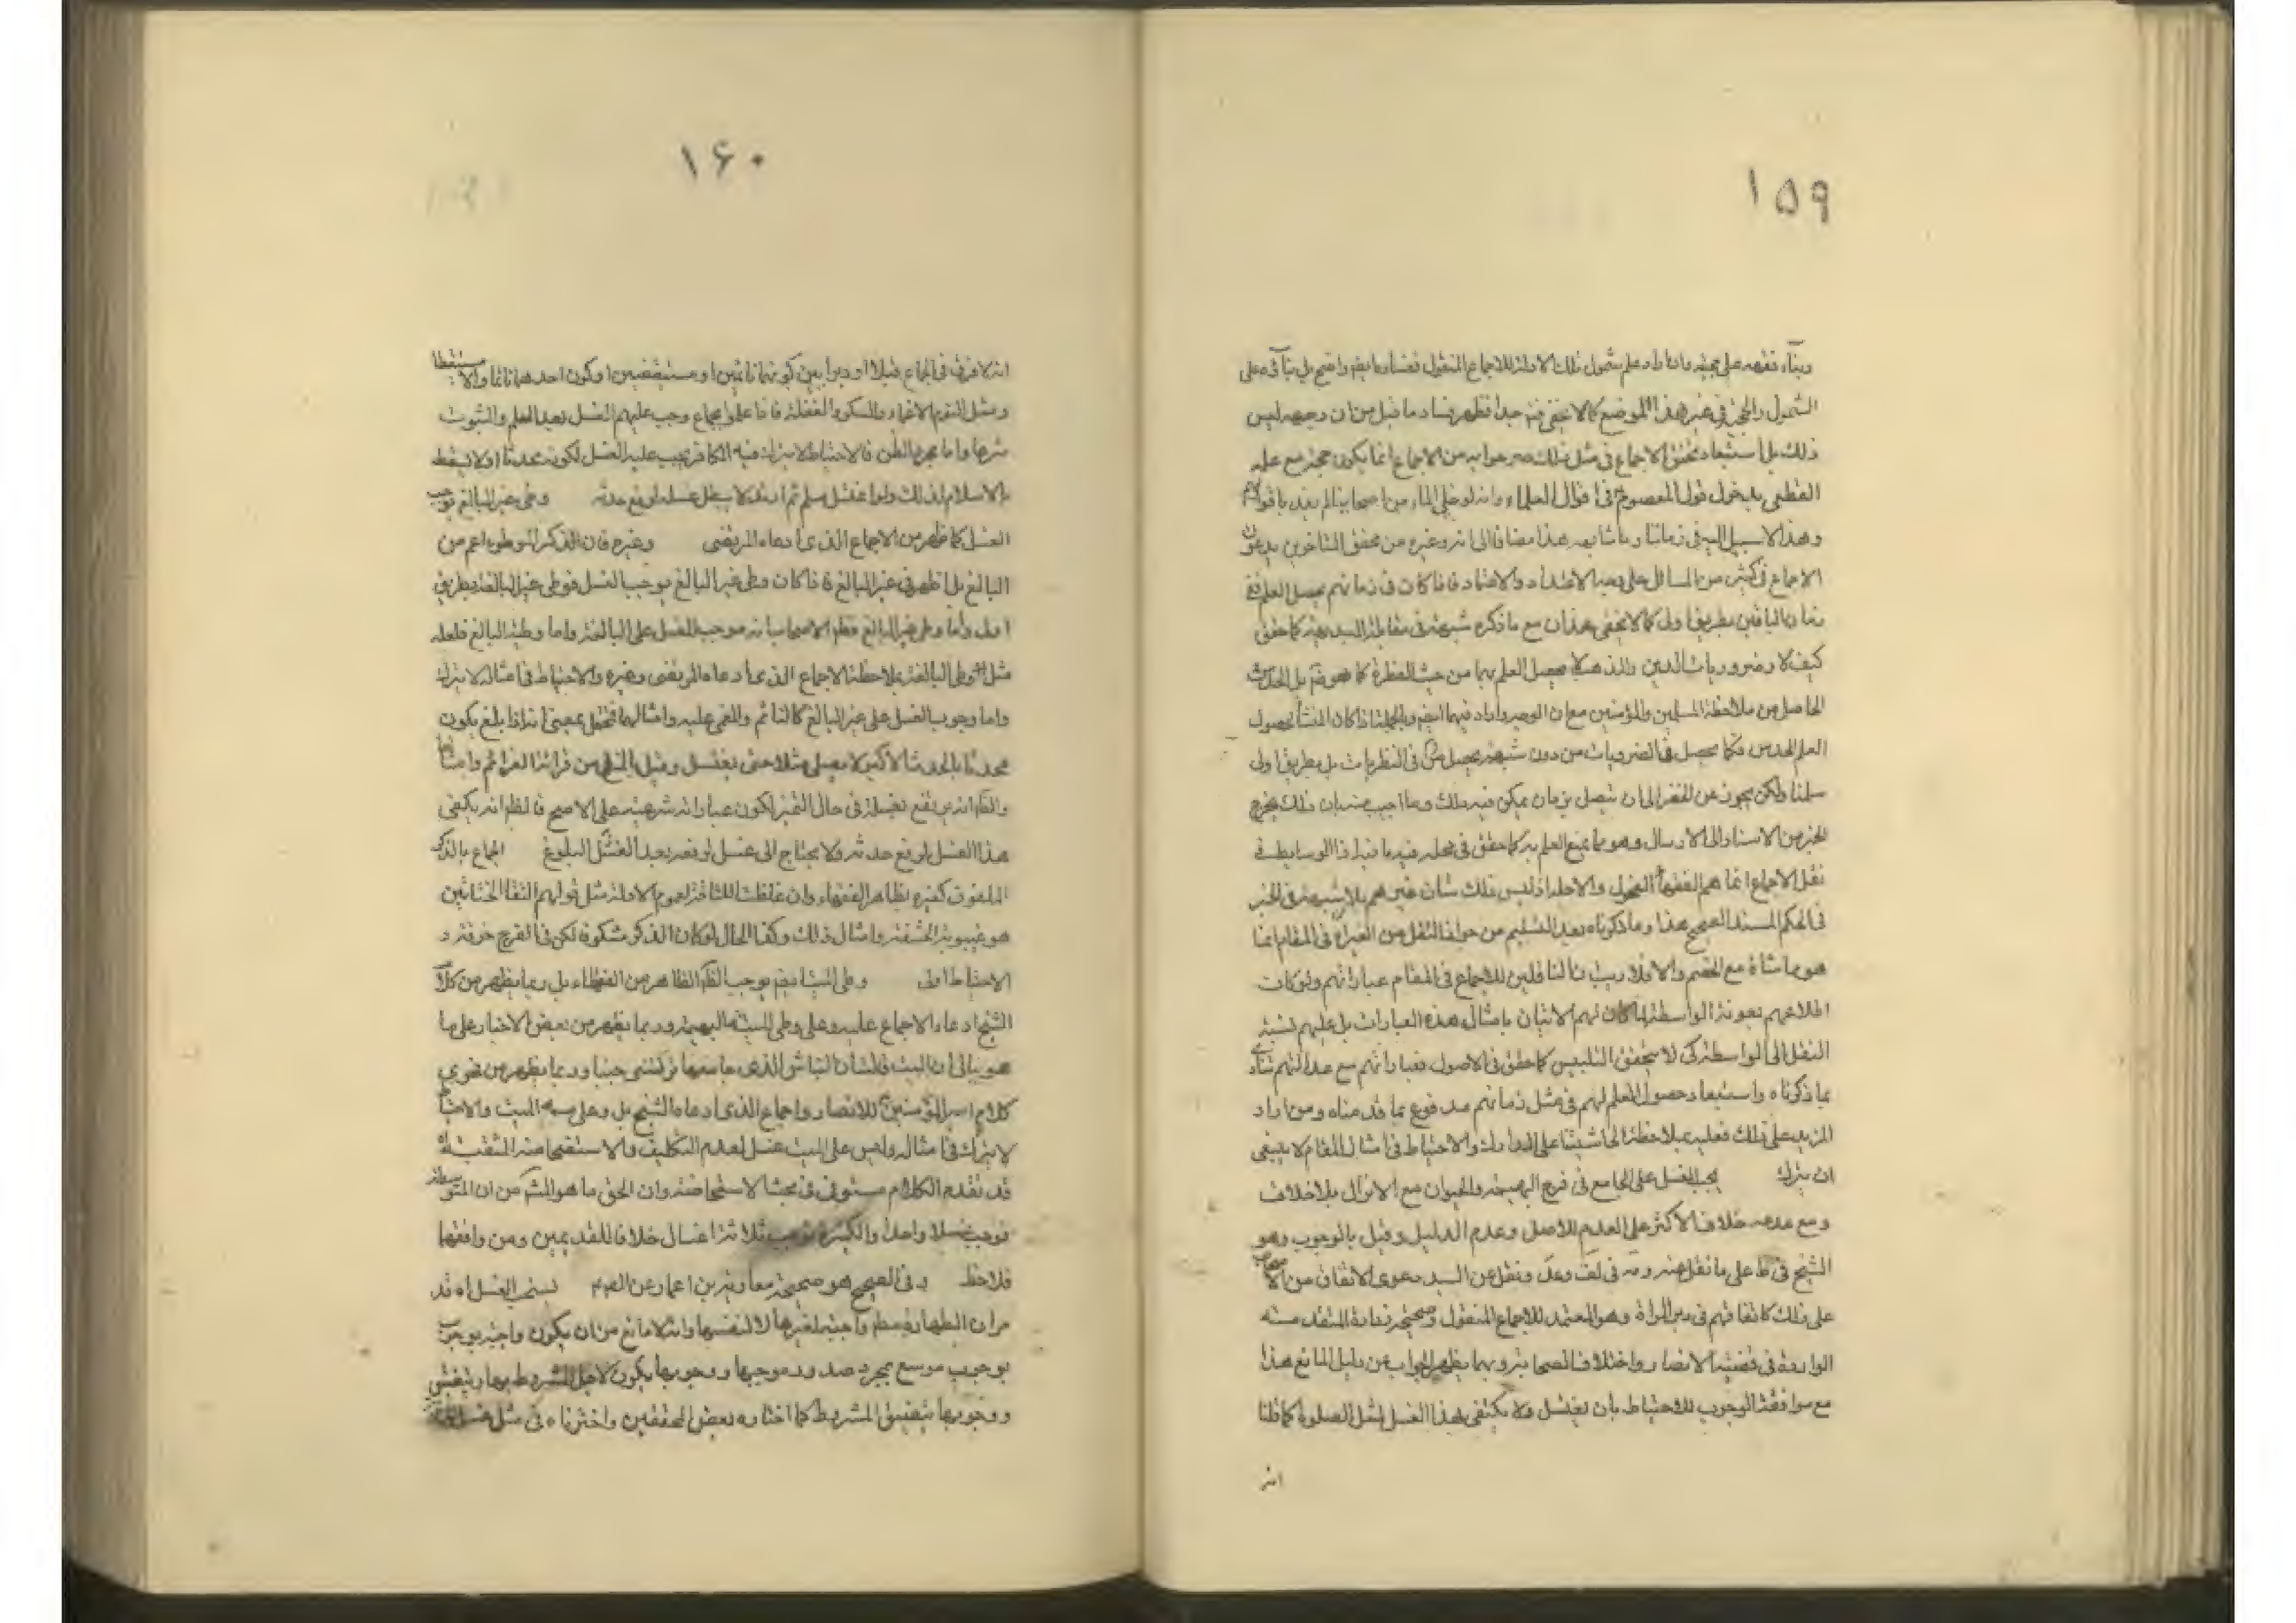 ١۵٩
وبناء تفهمه على حجيته وان اراد علم شمول تلك الادلة للاجماع المنقول ففساده ايضا واضح بل بناؤه على
الشمول والحجية في غير هذا الموضع كما لا يخفى فيه جدا فظهر فساد ما قيل من ان وجهه ليس
ذلك بل استبعاد تحقق الاجماع في مثل ذلك جوابه من الاجماع انما يكون حجة مع علمه
القطعي بدخول قول المعصوم في اقوال العلماء وانه لو خلى الماء من اصحابنا لم يعد باقوالهم
وهذا لا سبيل اليه في زماننا وما شابهه هذا مضافا الى انه وغيره من محققي المتاخرين يدعون
الاجماع في كثير من المسائل على جهة الاعتداد والاعتماد فاذا كان في زمانهم يحصل العلم ففي
زمان الباقين بطريق اولى كما لا يخفى هذا مع ما ذكره شبهة في مقابلة البديهة كما حقق
كيف لا وضروريات الدين والمذهب لا يحصل العلم بهما من حيث الفطرة كما هو بل الحدس
الحاصل من ملاحظة المسلمين والمؤمنين مع ان الوجه واراد فيهما ايضا وبالجملة اذا كان المنشأ لحصول
العلم الحدس فكما يحصل في الضروريات من دون شبهة يحصل في النظريات بل بطريق اولى
سلمنا ولكن يجوز عن الفقر الى ان يتصل بزمان يمكن فيه ذلك وما اجيب عنه بان ذلك يخرج
الخبر من الاسناد الى الارسال وهو مما يمنع العلم به كما حقق في محله فيه ما فيه اذ الوسايط في
نقل الاجماع انما هم الفقهاء الفحول والاجلاء اذ ليس ذلك شان غيرهم بلا شبهة في الخبر
في الحكم المسند الصحيح هذا وما ذكرناه بعد التسليم من جواز النقل من الغير في المقام انما
هو مماشاة مع الخصم والا فلا ريب ان الناقلين للاجماع في المقام عباراتهم ولو كانت
اطلاعهم بمعونة الواسطة لما كان لهم الاتيان بامثال هذه العبارات بل عليهم نسبة
النقل الى الواسطة كي لا يتحقق التلبيس كما حقق في الاصول فعباراتهم مع عدالتهم تنادي
بما ذكرناه واستبعاد حصول العلم لهم في مثل زمانهم مدفوع بما قدمناه ومن اراد
المزيد على ذلك فعليه بملاحظة الحاشيتنا على المدارك والاحتياط في امثال المقام لا ينبغي
ان يترك يجب الغسل على الجامع في فرج البهيمة والحيوان مع الانزال بلا خلاف
ومع عدمه خلاف الاكثر على العدم للاصل وعدم الدليل وقيل بالوجوب وهو
الشيخ في ط على ما نقل عنه ومة في لف وعد ونقل عن السيد دعوى الاتفاق من الاصحاب
على ذلك كاتفاقهم في دبر المراة وهو المعتمد للاجماع المنقول وصحيحة زرارة المتقدمة
الواردة في قضية الانصار واختلاف الصحابة وبهما يظهر الجواب عن دليل المانع هذا
مع موافقة الوجوب للاحتياط بان يغتسل ولا يكتفي بهذا الغسل لمثل الصلوة كما قلنا
انه
١۶٠
انه لا فرق في الجماع قبلا او دبرا بين كونهما نائمين او مستيقظين او كون احدهما نائما والاخر مستيقظا
ومثل النوم الاغماء والسكر والغفلة فاذا علموا بجماع وجب عليهم الغسل بعد العلم والثبوت
شرعا واما بمجرد الظن فالاحتياط لا يترك فيه الكافر يجب عليه الغسل لكونه محدثا ولا يسقط
بالاسلام لذلك ولو اغتسل مسلم ثم ارتد لا يبطل غسله لرفع حدثه وطى غير البالغ يوجب
الغسل كما ظهر من الاجماع الذي ادعاه المرتضى وغيره فان الذكر الموطوء اعم من
البالغ بل اظهر في غير البالغ فاذا كان وطى غير البالغ يوجب الغسل فوطى غير البالغة بطريق
اولى واما وطى غير البالغ فظاهر الاصحاب انه موجب للغسل على البالغة واما وطئه البالغ فلعله
مثل وطى البالغة بملاحظة الاجماع الذي ادعاه المرتضى وغيره والاحتياط في امثاله لا يترك
واما وجوب الغسل على غير البالغ كالنائم والمغمى عليه وامثالهما فتحقق بمعنى انه اذا بلغ يكون
محدثا بالحدث الاكبر لا يصلي مثلا حتى يغتسل وقبل المنع من قرائة العزائم وامثالها
والظ انه يرتفع بغسله في حال التميز لكون عباراته شرعية على الاصح فالظ انه يكفي
هذا الغسل لرفع حدثه ولا يحتاج الى غسل لو بعد الغسل البلوغ الجماع بالذكر
الملفوف كغيره لظاهر الفقهاء وان غلظت اللفافة لعموم الادلة مثل قولهم التقا الختانين
هو غيبوبة الحشفة وامثال ذلك وكذا الحال لو كان الذكر مشكوة لكن في الفرج خرقة و
الاحتياط اولى وطى الميت ايضا يوجب الظاهر من الفقهاء بل ربما يظهر من كلام
الشيخ ادعاء الاجماع عليه وعلى وطى الميت البهيمة وربما يظهر من بعض الاخبار على ما
هو ببالي ان البنت قالت ان النباش الذي جامعها تركتني جنبا وربما يظهر من فحوى
كلام امير المؤمنين للانصار واجماع الذي ادعاه الشيخ بل وعلى الميت والاحتياط
لا يترك في امثاله وليس على الميت غسل لعدم التكليف والاستحاضة المثقبة
قد تقدم الكلام مستوفى في بحث الاستحاضة وان الحق ما هو المش من ان المتوسطة
توجب غسلا واحدا والكثيرة توجب ثلاثة اغسال خلافا للقديمين ومن وافقهما
فلاحظ وفي الصحيح هو صحيحة معاوية بن عمار عن الص يستحب الغسل اه قد
مر ان الطهارة مط واجبة لغيرها لا لنفسها وانه لا مانع من ان يكون واجبة بوجوب
بوجوب موسع بمجرد صدور موجبها ووجوبها يكون لاجل المشروط بها ويتضيق
ووجوبها بتضيق المشروط كما اختاره بعض المحققين واخترناه في مثل غسل